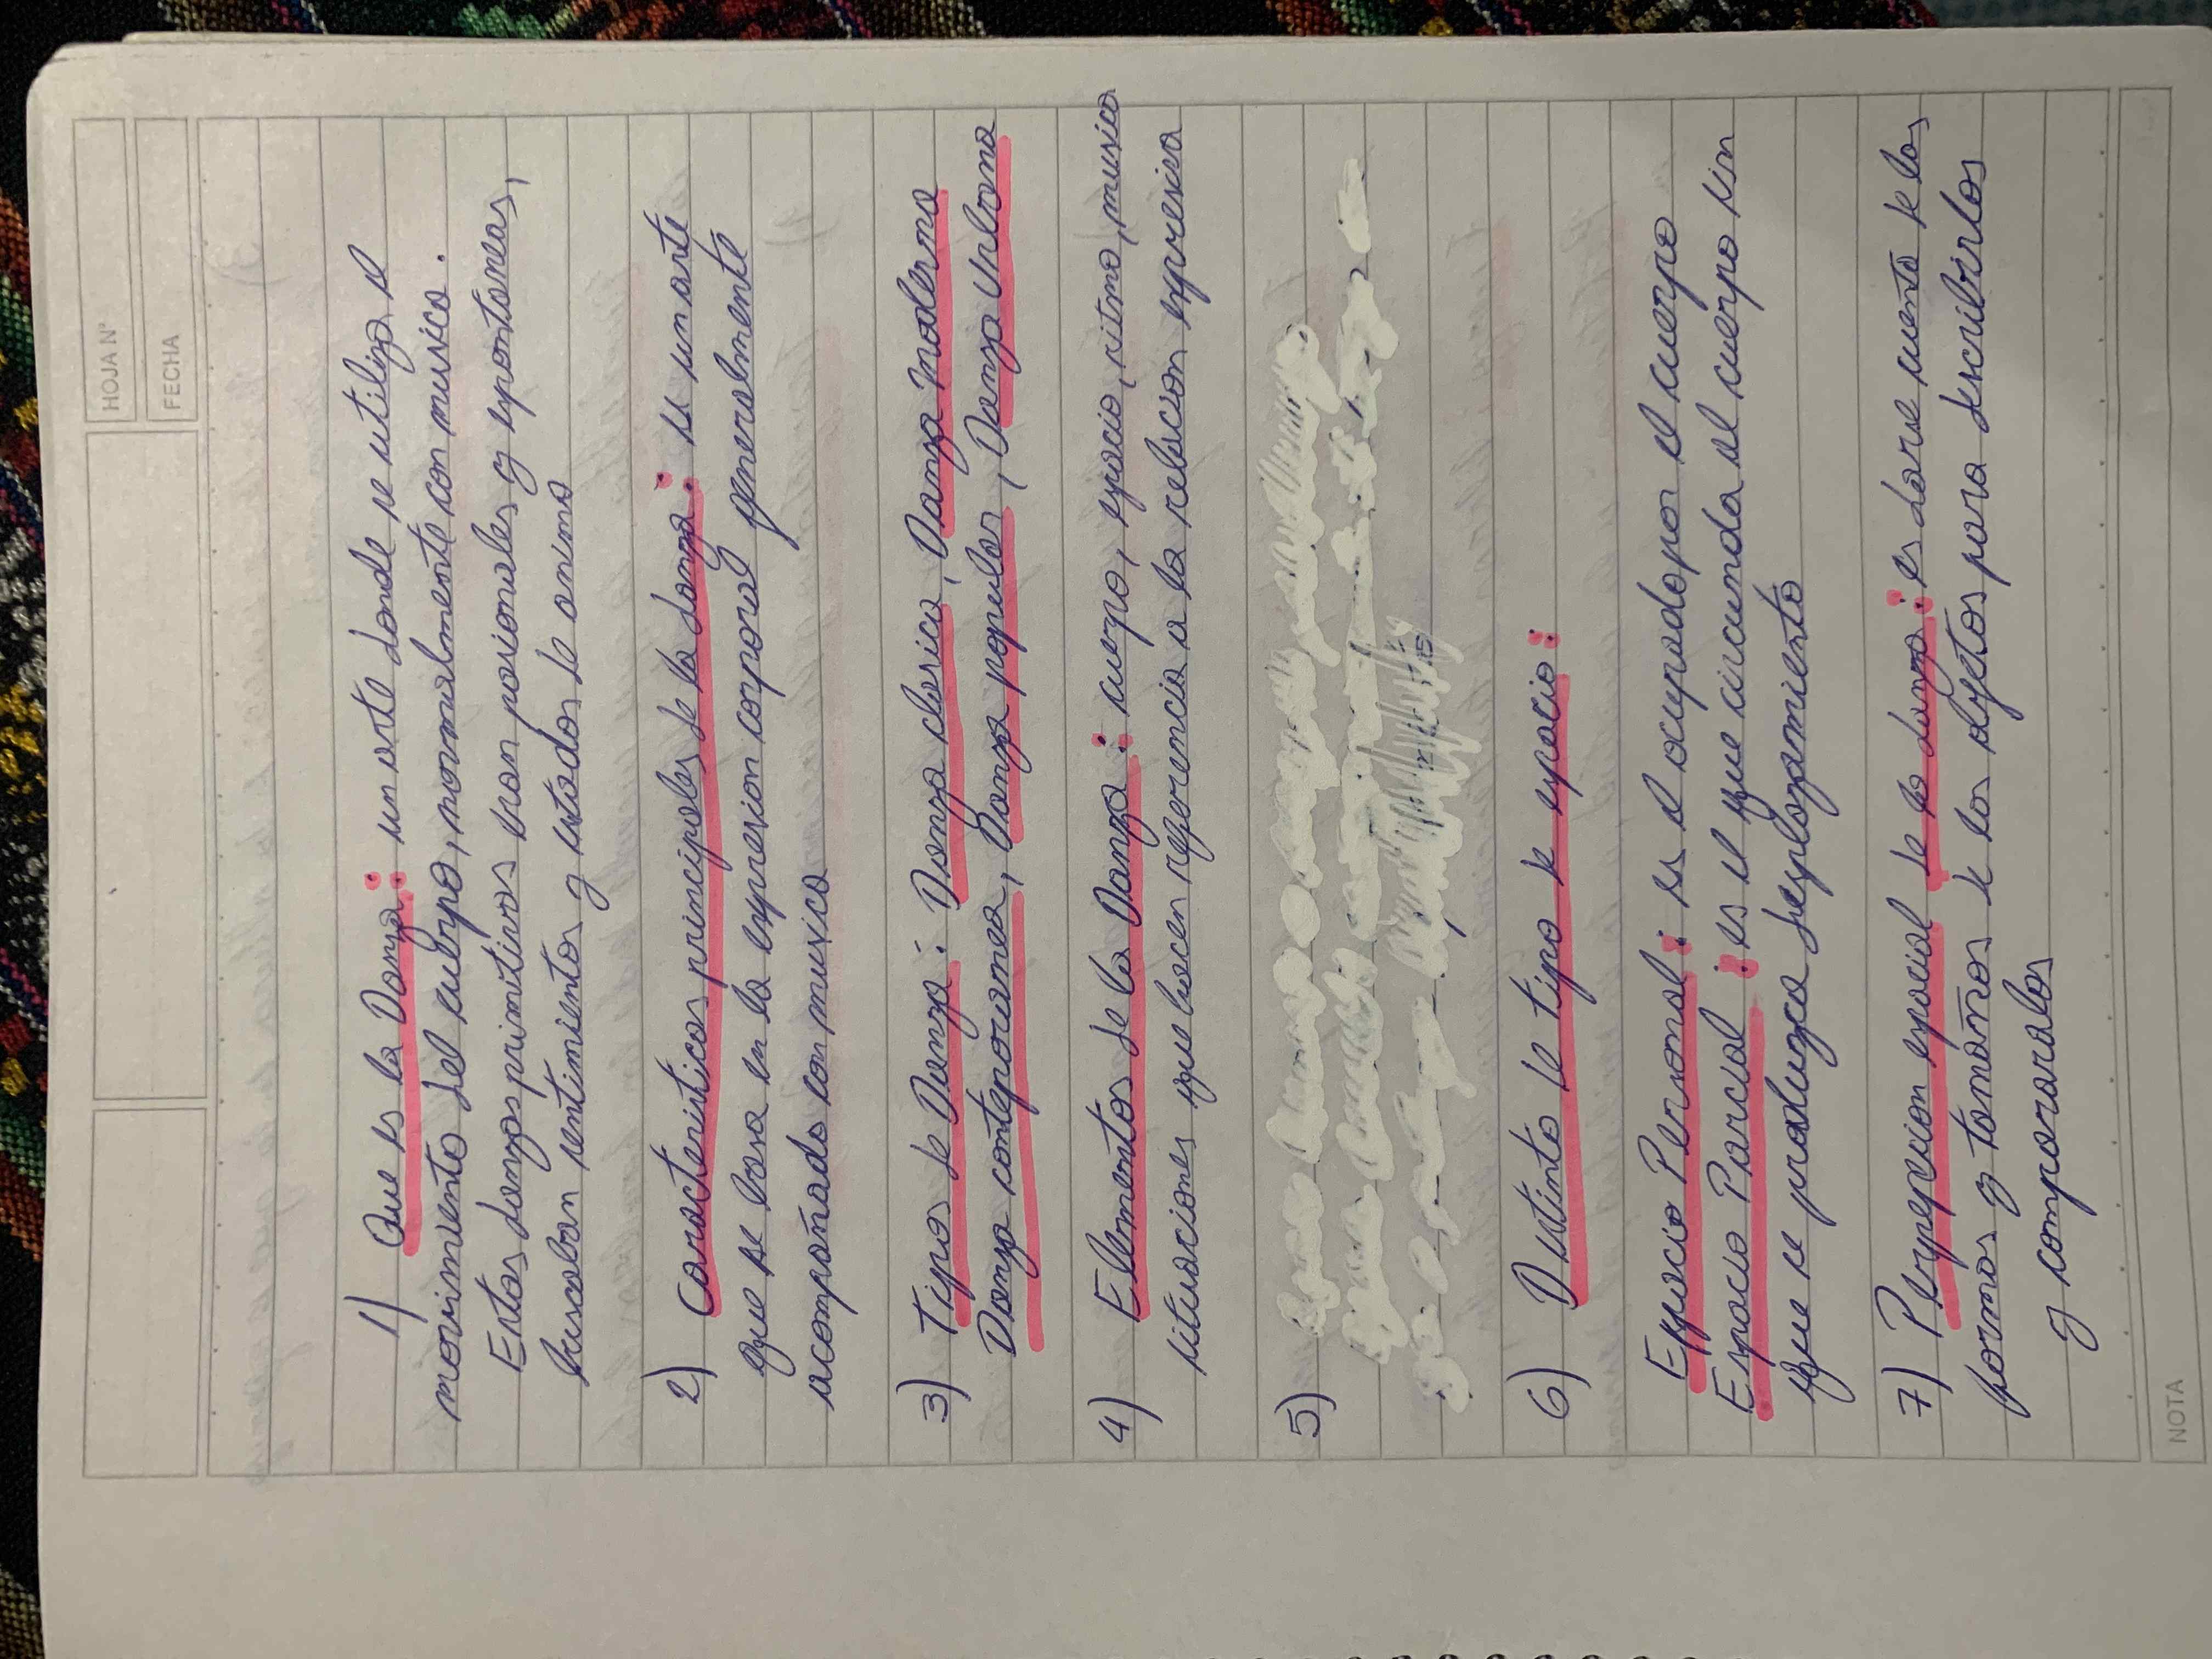 HOJA N°
FECHA
1) Que es la Danza: un arte donde se utiliza el
movimiento del cuerpo, normalmente con musica.
Entas danzas primitivas eran pasionales y espontaneas,
buscaban sentimientos y estados de animo
2) Caracteristicas principales de la danza: es un arte
que se basa en la expresion corporal generalmente
acompañado con musica
3) Tipos de Danza: Danza clasica, Danza Moderna
Danza conteporanea, Danza popular, Danza Urbana
4) Elementos de la Danza: cuerpo, espacio, ritmo, musica
situaciones que hacen referencia a la relacion expresiva
5)
6) Distinto de tipo de espacio:
Espacio Personal: es el ocupado por el cuerpo
Espacio Parcial: es el que circunda al cuerpo sin
que se produzca desplazamiento
7) Perspepcion espacial de la danza: es darse cuenta de las
formas y tamaños de los objetos para describirlos
y compararalos
NOTA